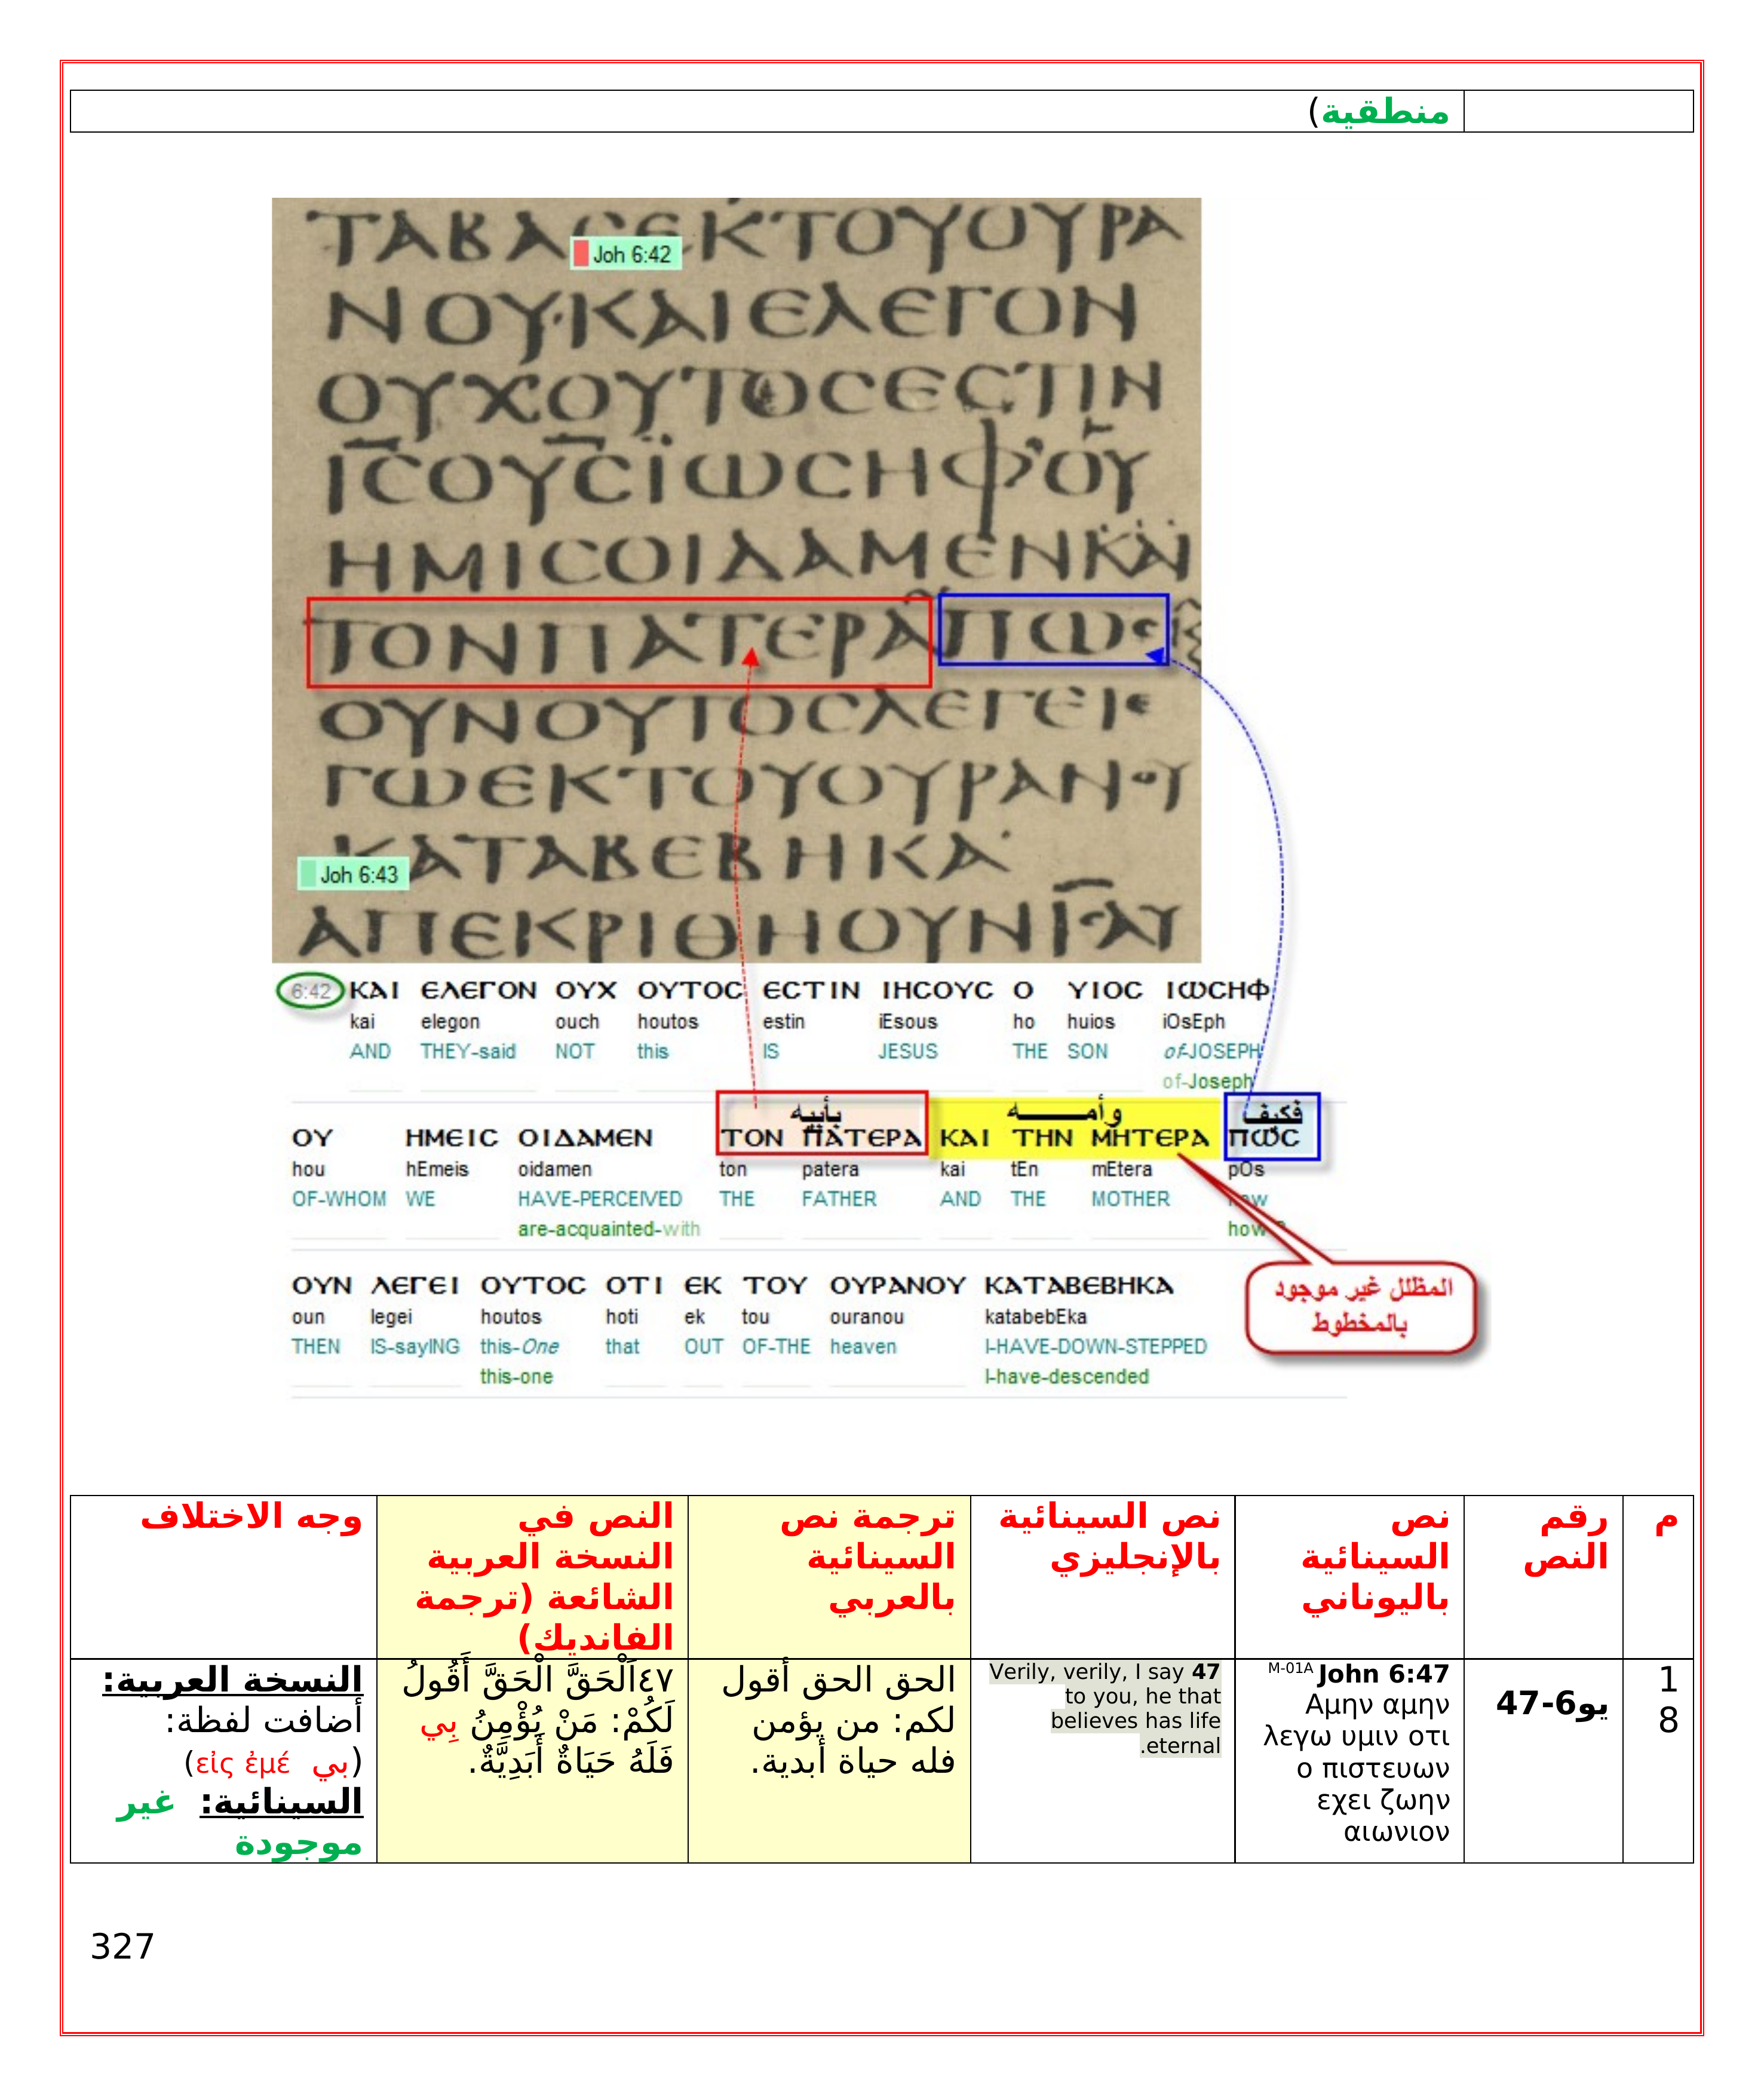 منطقية)
ΤΑΒΑϹΕΚΤΟΥΟΥΡΑ
Joh 6:42
ΝΟΥ·ΚΑΙΕΛΕΓΟΝ
ΟΥΧΟΥΤΟϹΕϹΤΙΝ
ΙϹΟΥϹΪΩϹΗΦ'ΟΥ
ΗΜΙϹΟΙΔΑΜΕΝΚΑΙ
ΤΟΝΠΑΤΕΡΑΠΩϹ
ΟΥΝΟΥΤΟϹΛΕΓΕΙΕ
ΓΩΕΚΤΟΥΟΥΡΑΝΟΥ
ΚΑΤΑΒΕΒΗΚΑ
Joh 6:43
ΑΠΕΚΡΙΘΗΟΥΝΙϹΑΥ
6:42 ΚΑΙ ΕΛΕΓΟΝ ΟΥΧ ΟΥΤΟϹ ΕϹΤΙΝ ΙΗϹΟΥϹ Ο ΥΙΟϹ ΙΩϹΗΦ
kai elegon ouch houtos estin iEsous ho huios iOsEph
AND THEY-said NOT this IS JESUS THE SON of-JOSEPH
of-Joseph
بأبيه وأمـــــه فكيف
ΟΥ ΗΜΕΙϹ ΟΙΔΑΜΕΝ ΤΟΝ ΠΑΤΕΡΑ ΚΑΙ ΤΗΝ ΜΗΤΕΡΑ ΠΩϹ
hou hEmeis oidamen ton patera kai tEn mEtera pOs
OF-WHOM WE HAVE-PERCEIVED THE FATHER AND THE MOTHER how
are-acquainted-with how
ΟΥΝ ΛΕΓΕΙ ΟΥΤΟϹ ΟΤΙ ΕΚ ΤΟΥ ΟΥΡΑΝΟΥ ΚΑΤΑΒΕΒΗΚΑ
oun legei houtos hoti ek tou ouranou katabebEka
THEN IS-sayING this-One that OUT OF-THE heaven I-HAVE-DOWN-STEPPED
this-one I-have-descended
المظلل غير موجود
بالمخطوط
م
رقم
النص
نص
السينائية
باليوناني
نص السينائية
بالإنجليزي
ترجمة نص
السينائية
بالعربي
النص في
النسخة العربية
الشائعة (ترجمة
الفانديك)
وجه الاختلاف
1
8
يو6-47
M-01A John 6:47
Αμην αμην
λεγω υμιν οτι
ο πιστευων
εχει ζωην
αιωνιον
47 Verily, verily, I say
to you, he that
believes has life
eternal.
الحق الحق أقول
لكم: من يؤمن
فله حياة أبدية.
٤٧اَلْحَقَّ الْحَقَّ أَقُولُ
لَكُمْ: مَنْ يُؤْمِنُ بِي
فَلَهُ حَيَاةٌ أَبَدِيَّةٌ.
النسخة العربية:
أضافت لفظة:
(بي εἰς ἐμέ)
السينائية: غير
موجودة
327